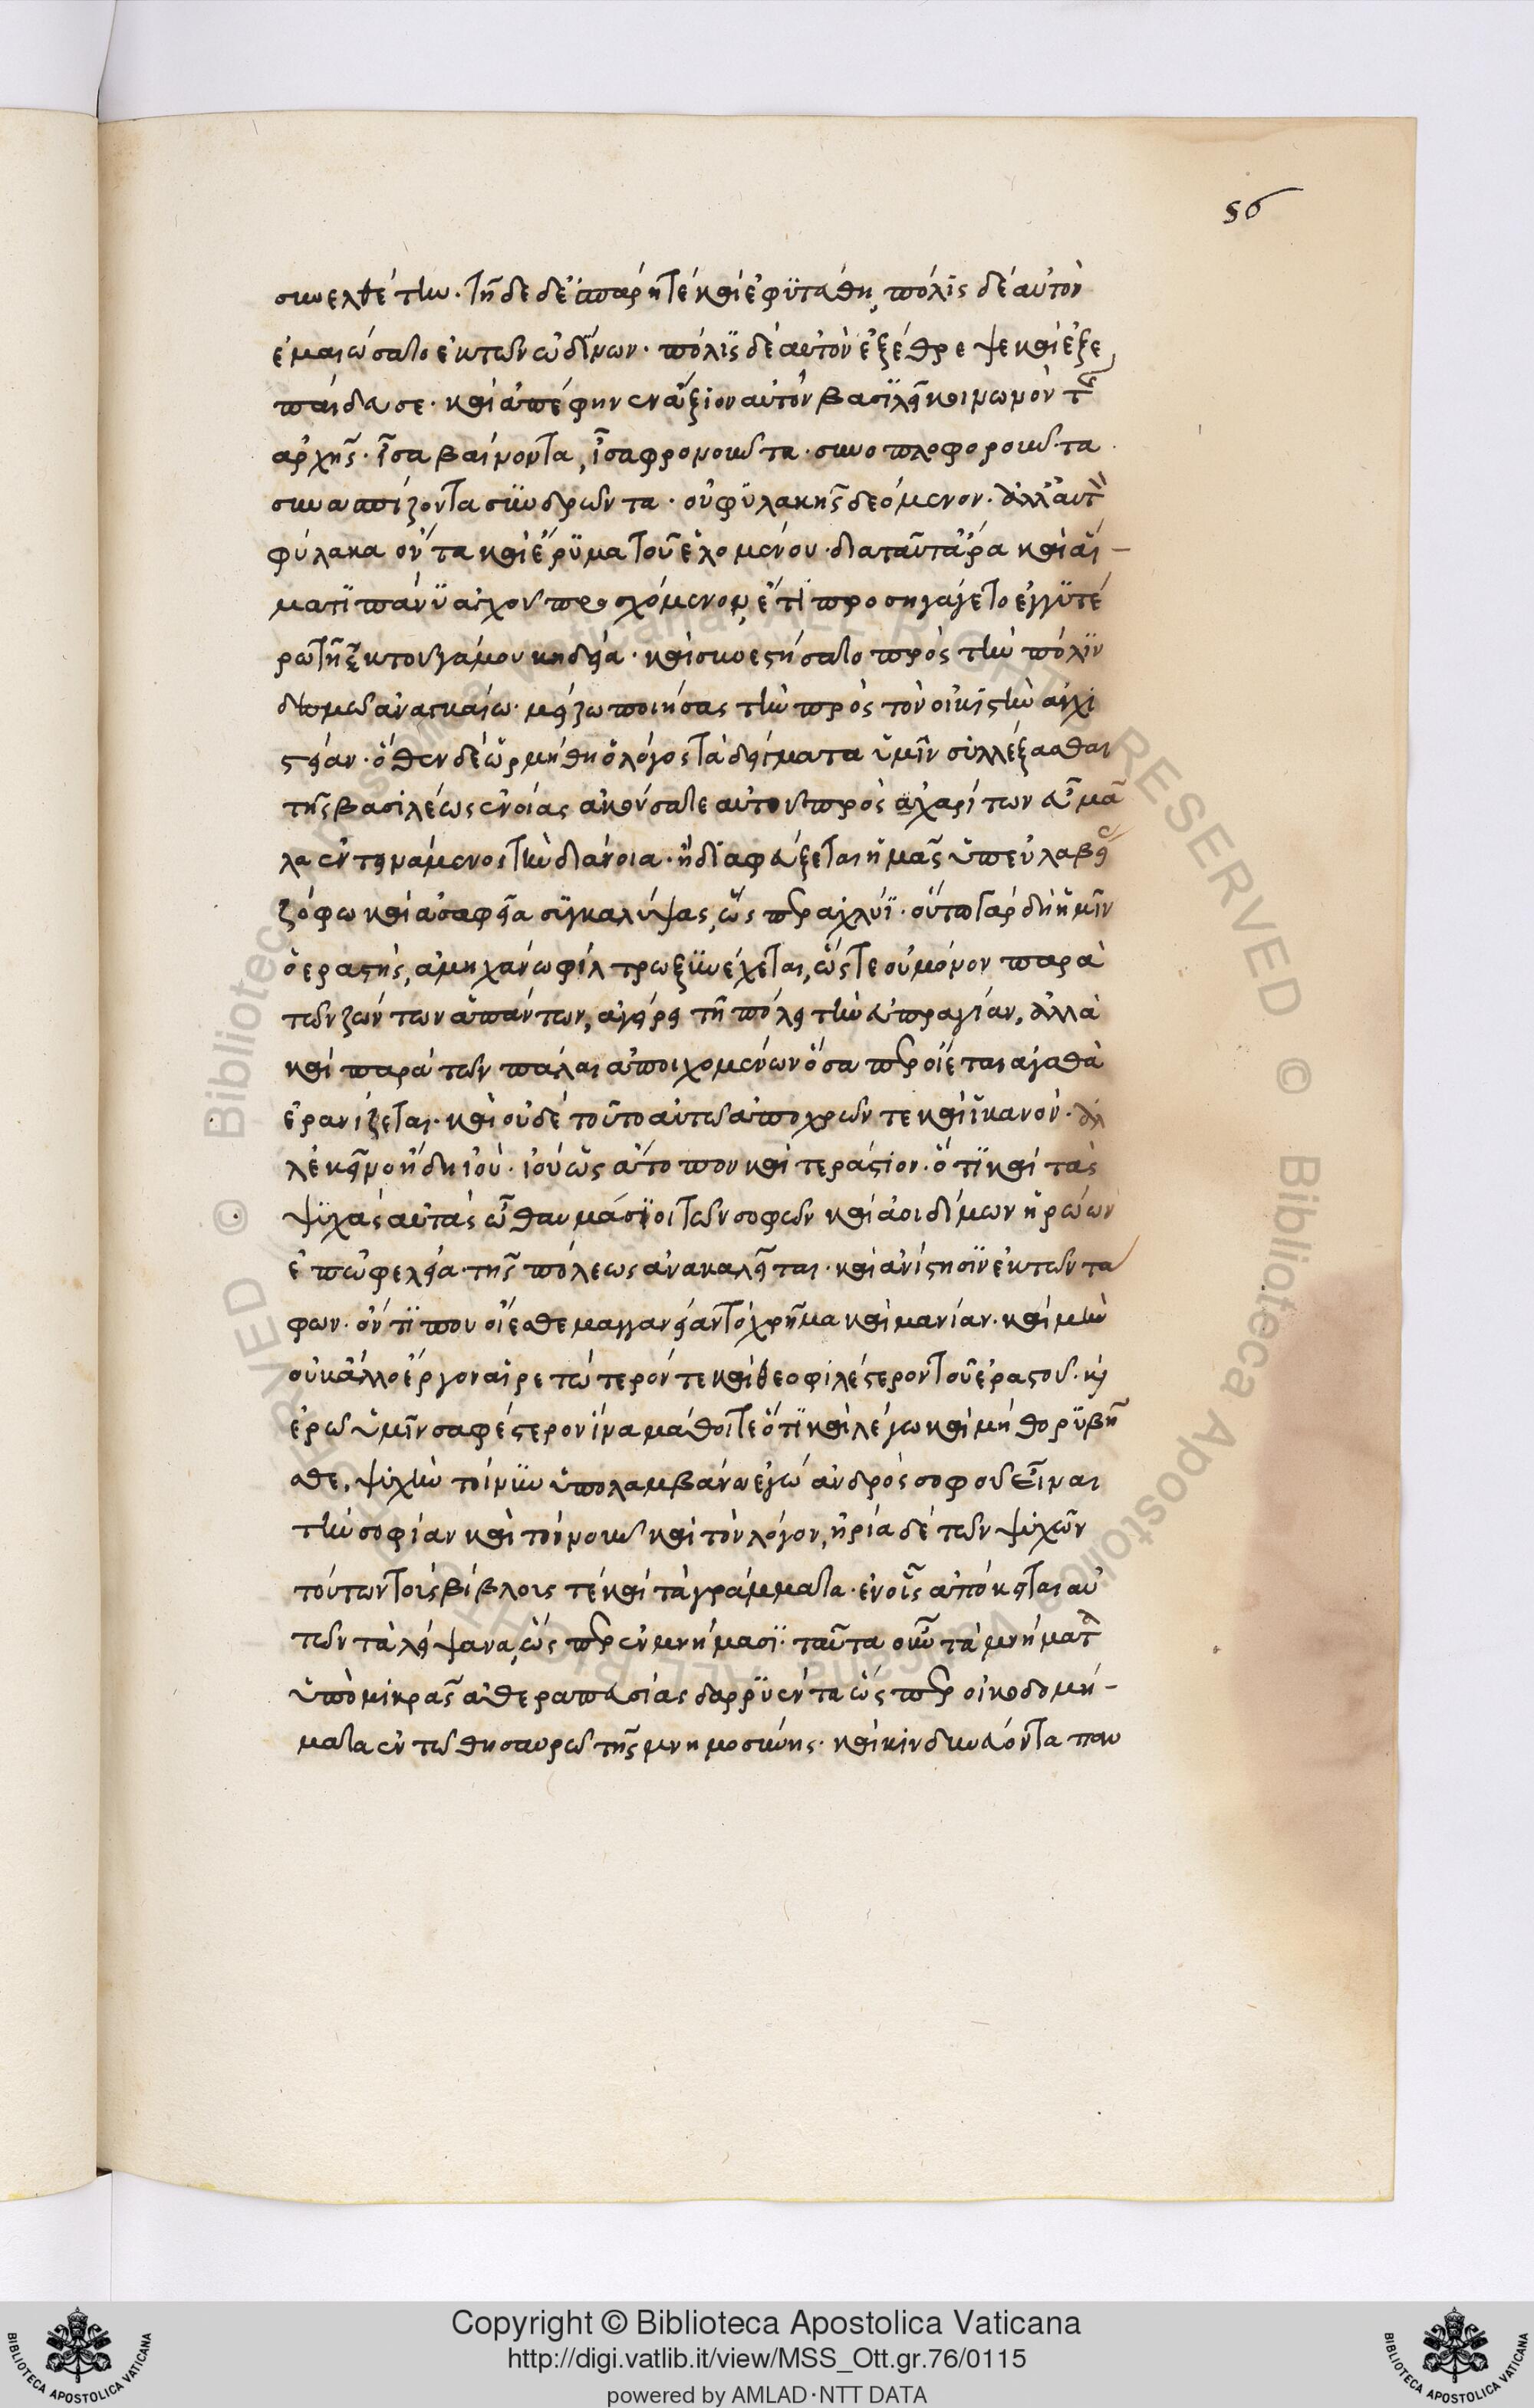 56
συνελθέτην. τῇδε δὲ ἐσπάρη τὲ καὶ ἐφϋτάθη, πόλϊς δὲ αὐτὸν
ἐμαιώσατο ἐκ τῶν ὠδίνων. πόλϊς δὲ αὐτὸν ἐξέθρεψε καὶ ἐξε
παίδευσε. καὶ ἀπέφηνεν ἄξιον αὐτὸν βασιλεῖ κοινωνὸν τῆς
ἀρχῆς. ἴσα βαίνοντα, ἴσα φρονοῦντα. συνοπλοφοροῦντα.
συνασπίζοντα σϋνδρῶντα. οὐ φϋλακῆς δεόμενον. ἀλλ' αὐτὸν
φύλακα ὄντα καὶ ἔρϋμα τοῦ ἑλομένου. διαταῦτ' ἄρα καὶ αἵ-
ματϊ πάνϋ ἄγχον προσχόμενον, ἔτϊ προσηγάγετο ἐγγϋτέ
ρω τῇ ἐκ τοῦ γάμου κηδεία. καὶ συνεστήσατο πρὸς τὴν πόλϊν
δεσμῶ ἀναγκαίω. μείζω ποιήσας τὴν πρὸς τὸν οἰκιστὴν ἀγχι
στείαν. ὅθεν δὲ ὡρμήθη ὁ λόγος τὰ δείγματα ὑμῖν συλλέξασθαι
τῆς βασιλέως εὐνοίας ἀκούσατε αὐτοῦ πρὸς χαρίτων εὖ μά
λα ἐντεινάμενος τὴν διάνοια. ἢ διαφεύξεται ἡμᾶς ὑπ' εὐλαβείας
ζόφω καὶ ἀσαφεία σϋγκαλύψας, ὥσπερ ἀχλύϊ. οὕτω γὰρ δὴ ἡμῖν
ὁ ἐραστής, ἀμηχάνω φίλτρω ξϋνέχεται, ὥστε οὐ μόνον παρὰ
τῶν ζώντων ἁπάντων, ἀγείρει τῇ πόλει τὴν εὐπραγίαν, ἀλλὰ
καὶ παρὰ τῶν πάλαι ἀποιχομένων ὅσα προΐεται ἀγαθὰ
ἐρανίζεται. καὶ οὐδὲ τοῦτο αὐτῶ ἀποχρῶν τε καὶ ἱκανόν. ἀλ
λ' ἐκεῖνο ἤδη ἰού. ἰοὺ ὡς ἄτοπον καὶ τεράστιον. ὅτϊ καὶ τὰς
ψϋχὰς αὐτὰς ὦ θαυμάσϊοι τῶν σοφῶν καὶ ἀοιδίμων ἡρώων
ἐπ' ὠφελεία τῆς πόλεως ἀνακαλεῖται. καὶ ἀνίστησϊν ἐκ τῶν τά
φων. οὔ τϊ που οἴεσθε μαγγανείαν τὸ χρῆμα καὶ μανίαν. καὶ μὴν
οὐκ ἄλλο ἔργον αἱρετώτερόν τε καὶ θεοφιλέστερον τοῦ ἐραστοῦ. καὶ
ἐρῶ ὑμῖν σαφέστερον ἵνα μάθοιτε ὅτϊ καὶ λέγω καὶ μὴ θορϋβῆ
σθε, ψϋχὴν τοίνϋν ὑπολαμβάνω ἐγὼ ἀνδρὸς σοφοῦ εἶναι
τὴν σοφίαν καὶ τὸν νοῦν καὶ τὸν λόγον, ἠρία δὲ τῶν ψϋχῶν
τούτων τοὺς βίβλους τὲ καὶ τὰ γράμματα. ἐν οἷς ἀπόκειται αὐ
τῶν τὰ λείψανα, ὥσπερ ἐν μνήμασϊ. ταῦτα οὖν τὰ μνήματα
ὑπὸ μικρᾶς ἀθεραπευσίας διαρρϋέντα ὥσπερ οἰκοδομή-
ματα ἐν τῶ θησαυρῶ τῆς μνημοσύνης. καὶ κινδυνεύοντα παν
Copyright © Biblioteca Apostolica Vaticana
http://digi.vatlib.it/view/MSS_Ott.gr.76/0115
powered by AMLAD·NTT DATA
BIBLIOTECA APOSTOLICA VATICANA
BIBLIOTECA APOSTOLICA VATICANA